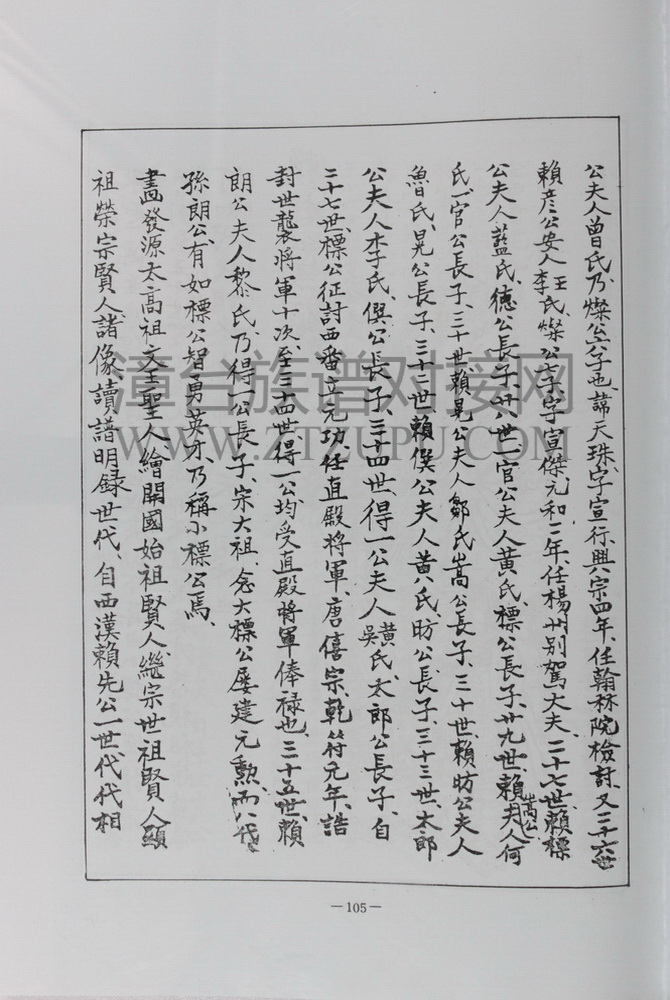 公夫人曾氏乃燦公六子也諱天珠字宣行興宗四年任翰林院檢討又二十六世
賴彥公安人王氏李氏燦公七子字宣傑元和二年任楊州別駕大夫二十七世賴標
公夫人藍氏德公長子廿八世一官公夫人黃氏標公長子廿九世賴嵩公夫人何
氏一官公長子三十世賴晃公夫人鄒氏嵩公長子三十世賴昉公夫人
魯氏晃公長子三十二世賴僎公夫人黃氏昉公長子三十三世太郎
公夫人李氏僎公長子三十四世得一公夫人黃氏吳太郎公長子自
二十七世標公征討西番立元功任直殿將軍唐僖宗乾符元年誥
封世襲將軍十次至三十四世得一公均受直殿將軍俸禄也三十五世賴
朗公夫人黎氏乃得一公長子宋大祖念大標公屡建元勲而八代
孫朗公有如標公智勇英才乃稱小標公焉
畵發源太高祖文王聖人繪開國始祖賢人繼宗世祖賢人顯
祖榮宗賢人諸像讀譜明録世代自西漢賴先公一世代代相
—105—
漳台族谱对接网
WWW.ZTZUPU.COM